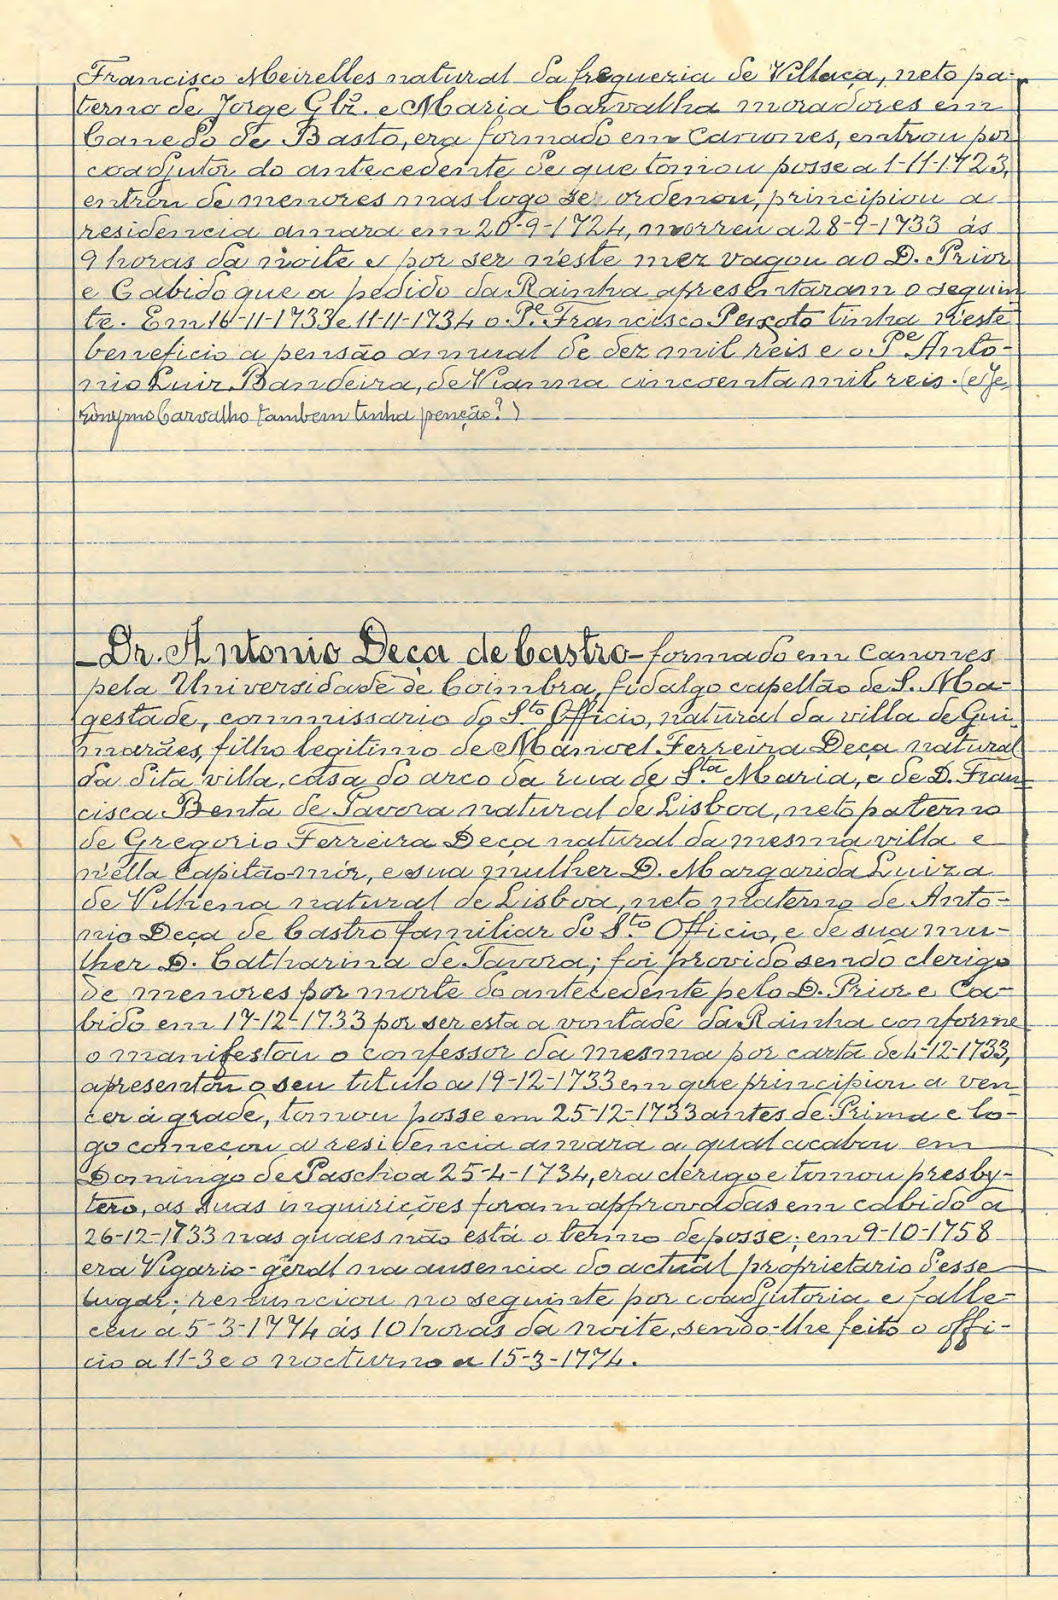 Francisco Meirelles natural da freguezia de Villaça, neto pa-
terno de Jorge Glz. e Maria Carvalha moradores em
Canedo de Basto, era formado em canones, entrou por
coadjutor do antecedente de que tomou posse a 1-11-1723,
entrou de menores mas logo se ordenou, principiou a
residencia amara em 20-9-1724, morreu a 28-9-1733 ás
9 horas da noite e por ser neste mez vagou ao D. Prior
e Cabido que a pedido da Rainha apresentaram o seguin
te. Em 16-11-1733 e 11-11-1734 o Pe. Francisco Peixoto tinha n'este
beneficio a pensão annual de dez mil reis e o Pe Anto-
nio Luiz Bandeira, de Vianna cincoenta mil reis. (e Je
ronymo Carvalho tambem tinha penção?)
-Dr. Antonio Deça de Castro- formado em canones
pela Universidade de Coimbra, fidalgo capellão de S. Ma-
gestade, commissario do Sto Officio, natural da villa de Gui-
marães, filho legitimo de Manoel Ferreira Deça natural
da dita villa, casa do arco da rua de Sta Maria, e de D. Fran-
cisca Benta de Tavora natural de Lisboa, neto paterno
de Gregorio Ferreira Deça natural da mesma villa e
n'ella capitão-mór, e sua mulher D. Margarida Luiza
de Vilhena natural de Lisboa, neto materno de Anto-
nio Deça de Castro familiar do Sto Officio, e de sua mu-
lher D. Catharina de Tavora; foi provido sendo clerigo
de menores por morte do antecedente pelo D. Prior e Ca-
bido em 17-12-1733 por ser esta a vontade da Rainha conforme
o manifestou o confessor da mesma por carta de 4-12-1733,
apresentou o seu titulo a 19-12-1733 em que principiou a ven-
cer á grade, tomou posse em 25-12-1733 antes de Prima e lo-
go começou a residencia amara a qual acabou em
Domingo de Paschoa 25-4-1734, era clerigo e tomou presby-
tero, as suas inquirições foram approvadas em cabido a
26-12-1733 nas quaes não está o termo de posse; em 9-10-1758
era Vigario-geral na ausencia do actual proprietario d'esse
lugar; renunciou no seguinte por coadjutoria e falle-
ceu a 5-3-1774 ás 10 horas da noite, sendo-lhe feito o offi-
cio a 11-3 e o nocturno a 15-3-1774.